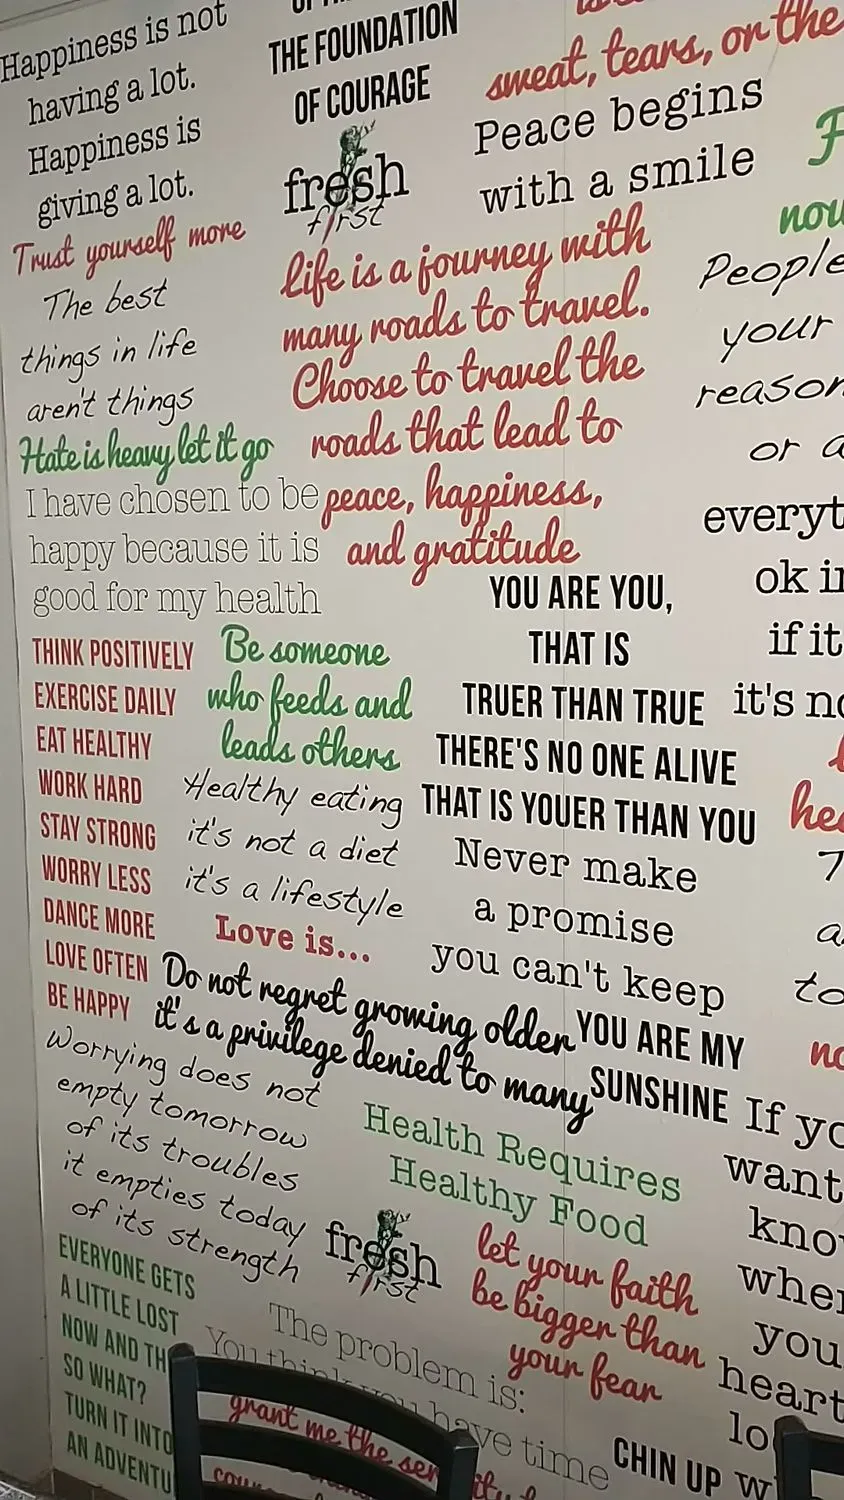 Happiness is not
having a lot.
Happiness is
giving a lot.
Trust yourself more
The best
things in life
aren't things
Hate is heavy let it go
I have chosen to be
happy because it is
good for my health
THINK POSITIVELY
EXERCISE DAILY
EAT HEALTHY
WORK HARD
STAY STRONG
WORRY LESS
DANCE MORE
LOVE OFTEN
BE HAPPY
Worrying does not
empty tomorrow
of its troubles
it empties today
of its strength
EVERYONE GETS
A LITTLE LOST
NOW AND TH
SO WHAT?
TURN IT INTO
AN ADVENTU
THE FOUNDATION
OF COURAGE
fresh
first
life is a journey with
many roads to travel.
Choose to travel the
roads that lead to
peace, happiness,
and gratitude
Be someone
who feeds and
leads others
Healthy eating
it's not a diet
it's a lifestyle
Love is...
Do not regret growing older
it's a privilege denied to many
Health Requires
Healthy Food
fresh
first
The problem is:
You think you have time
grant me the ser
sweat, tears, or the
Peace begins
with a smile
YOU ARE YOU,
THAT IS
TRUER THAN TRUE
THERE'S NO ONE ALIVE
THAT IS YOUER THAN YOU
Never make
a promise
you can't keep
YOU ARE MY
SUNSHINE
let your faith
be bigger than
your fear
CHIN UP
F
now
People
your
reason
or a
everyt
ok in
if it
it's no
hea
T
a
to
no
If yo
want
kno
when
you
heart
lo
w